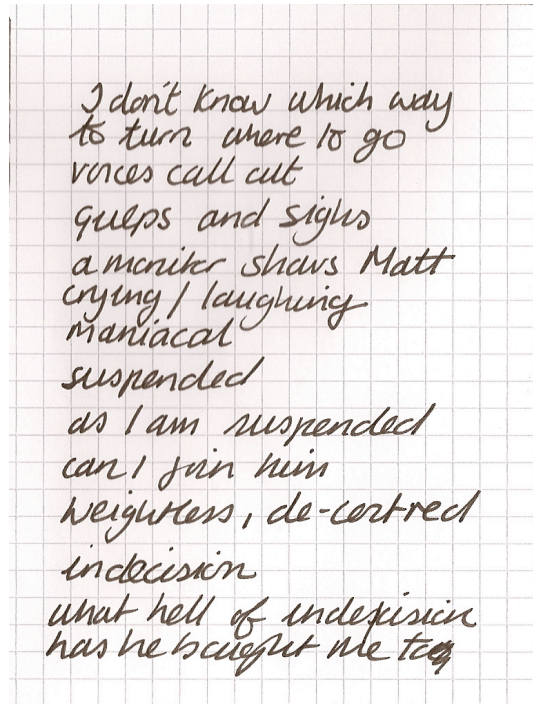 I don't know which way
to turn where to go
voices call out
gulps and sighs
a monitor shows Matt
crying / laughing
maniacal
suspended
as I am suspended
can I join him
weightless, de-centred
indecision
what hell of indecision
has he bought me to